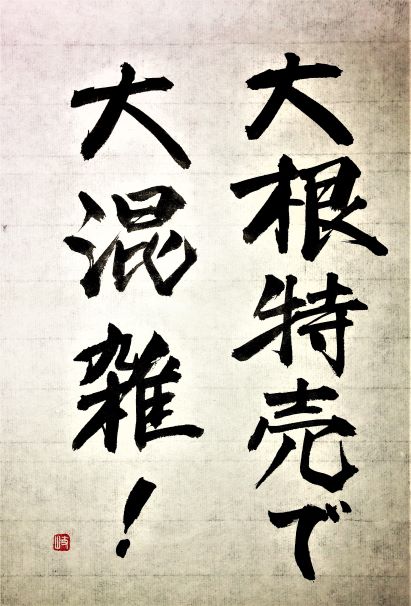 大根特売で
大混雑！